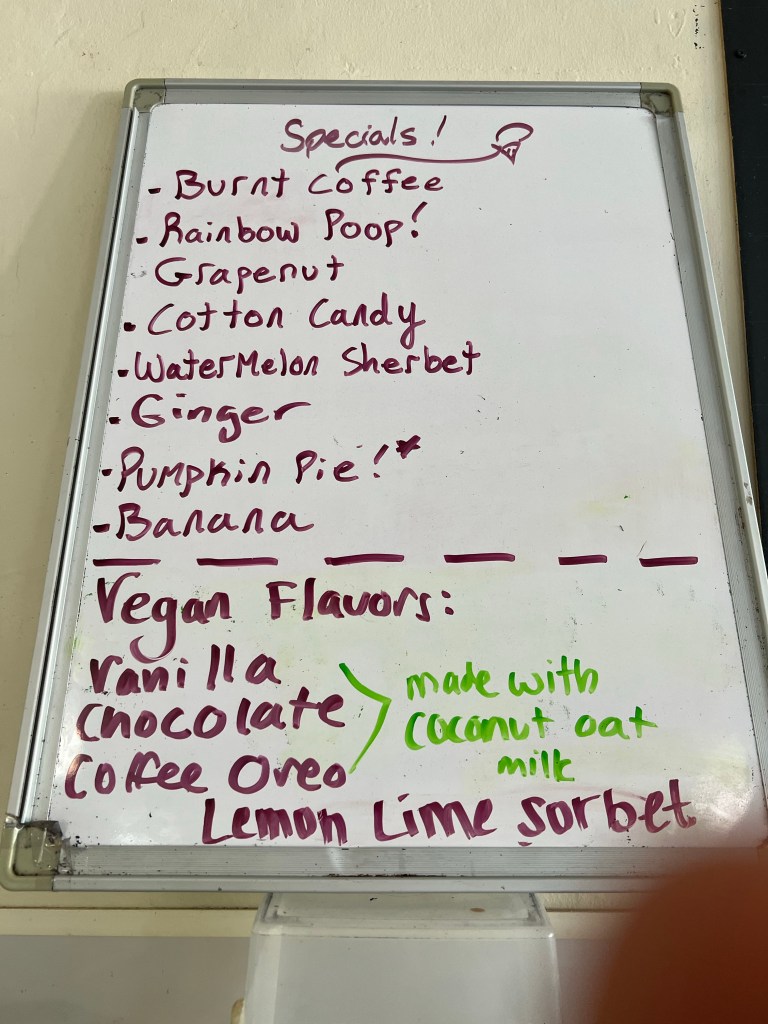 Specials!
- Burnt Coffee
- Rainbow Poop!
Grapenut
- Cotton Candy
- WaterMelon Sherbet
- Ginger
- Pumpkin Pie!*
- Banana
Vegan Flavors:
Vanilla
Chocolate
Coffee Oreo
made with
coconut oat
milk
Lemon Lime Sorbet